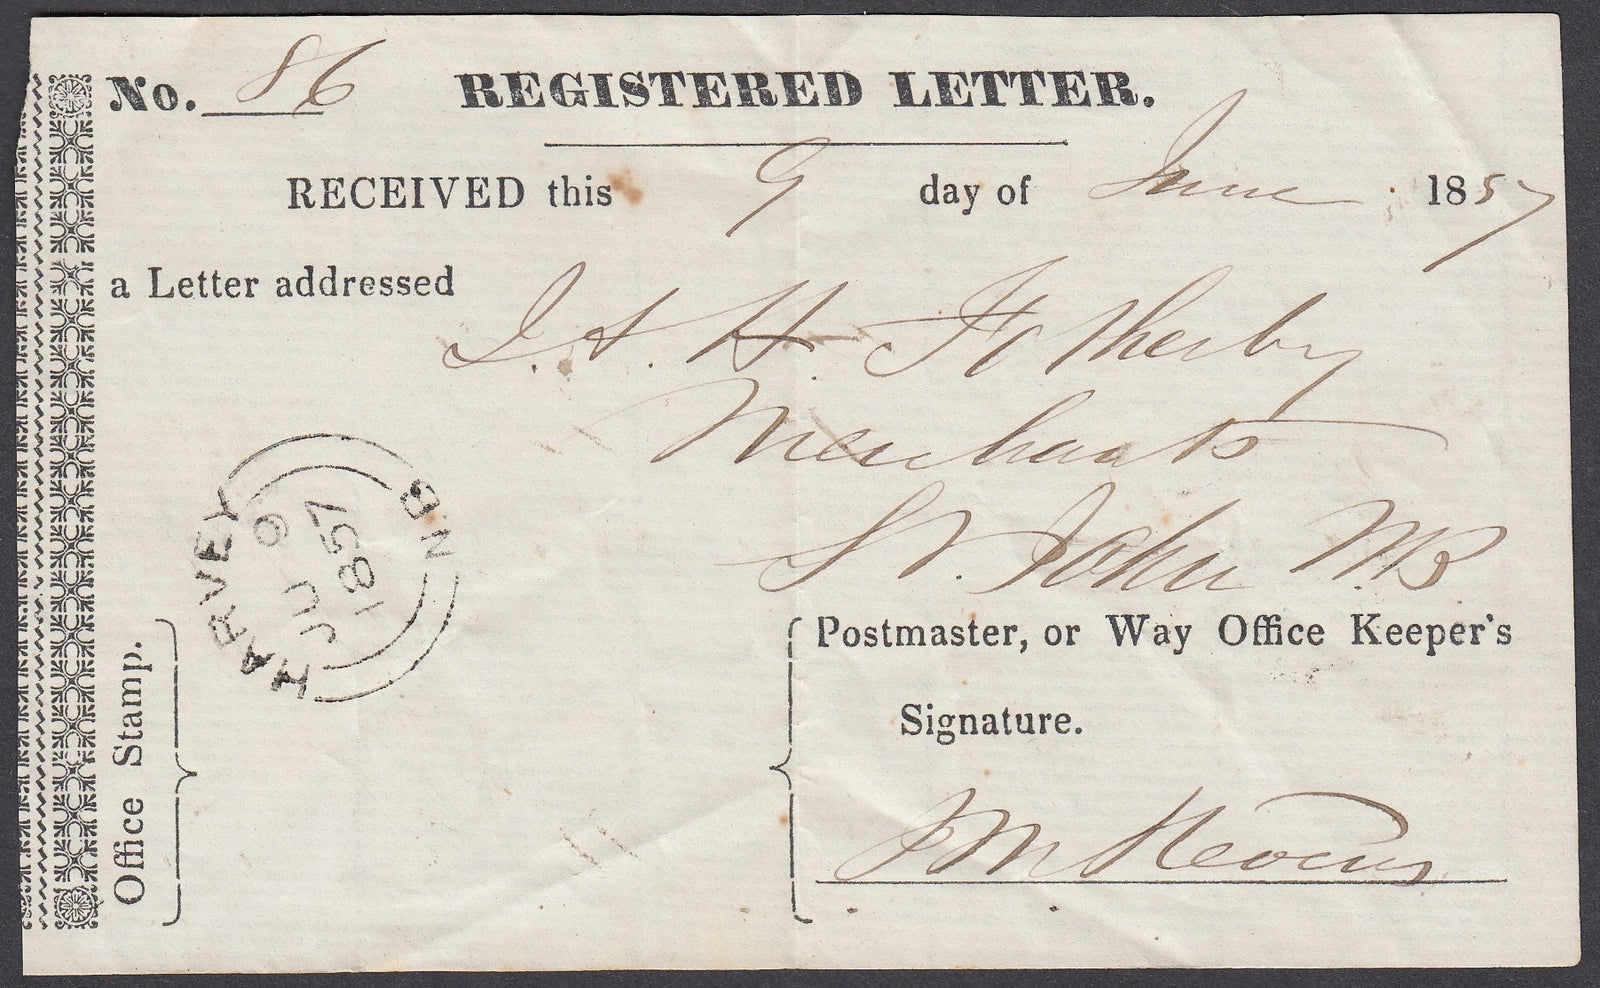 No. 86 REGISTERED LETTER.
RECEIVED this 9 day of June 1857
a Letter addressed
J. & H. Fotherby
Merchants
St. John NB
HARVEY NB
JU 9
1857
Office Stamp.
Postmaster, or Way Office Keeper's
Signature.